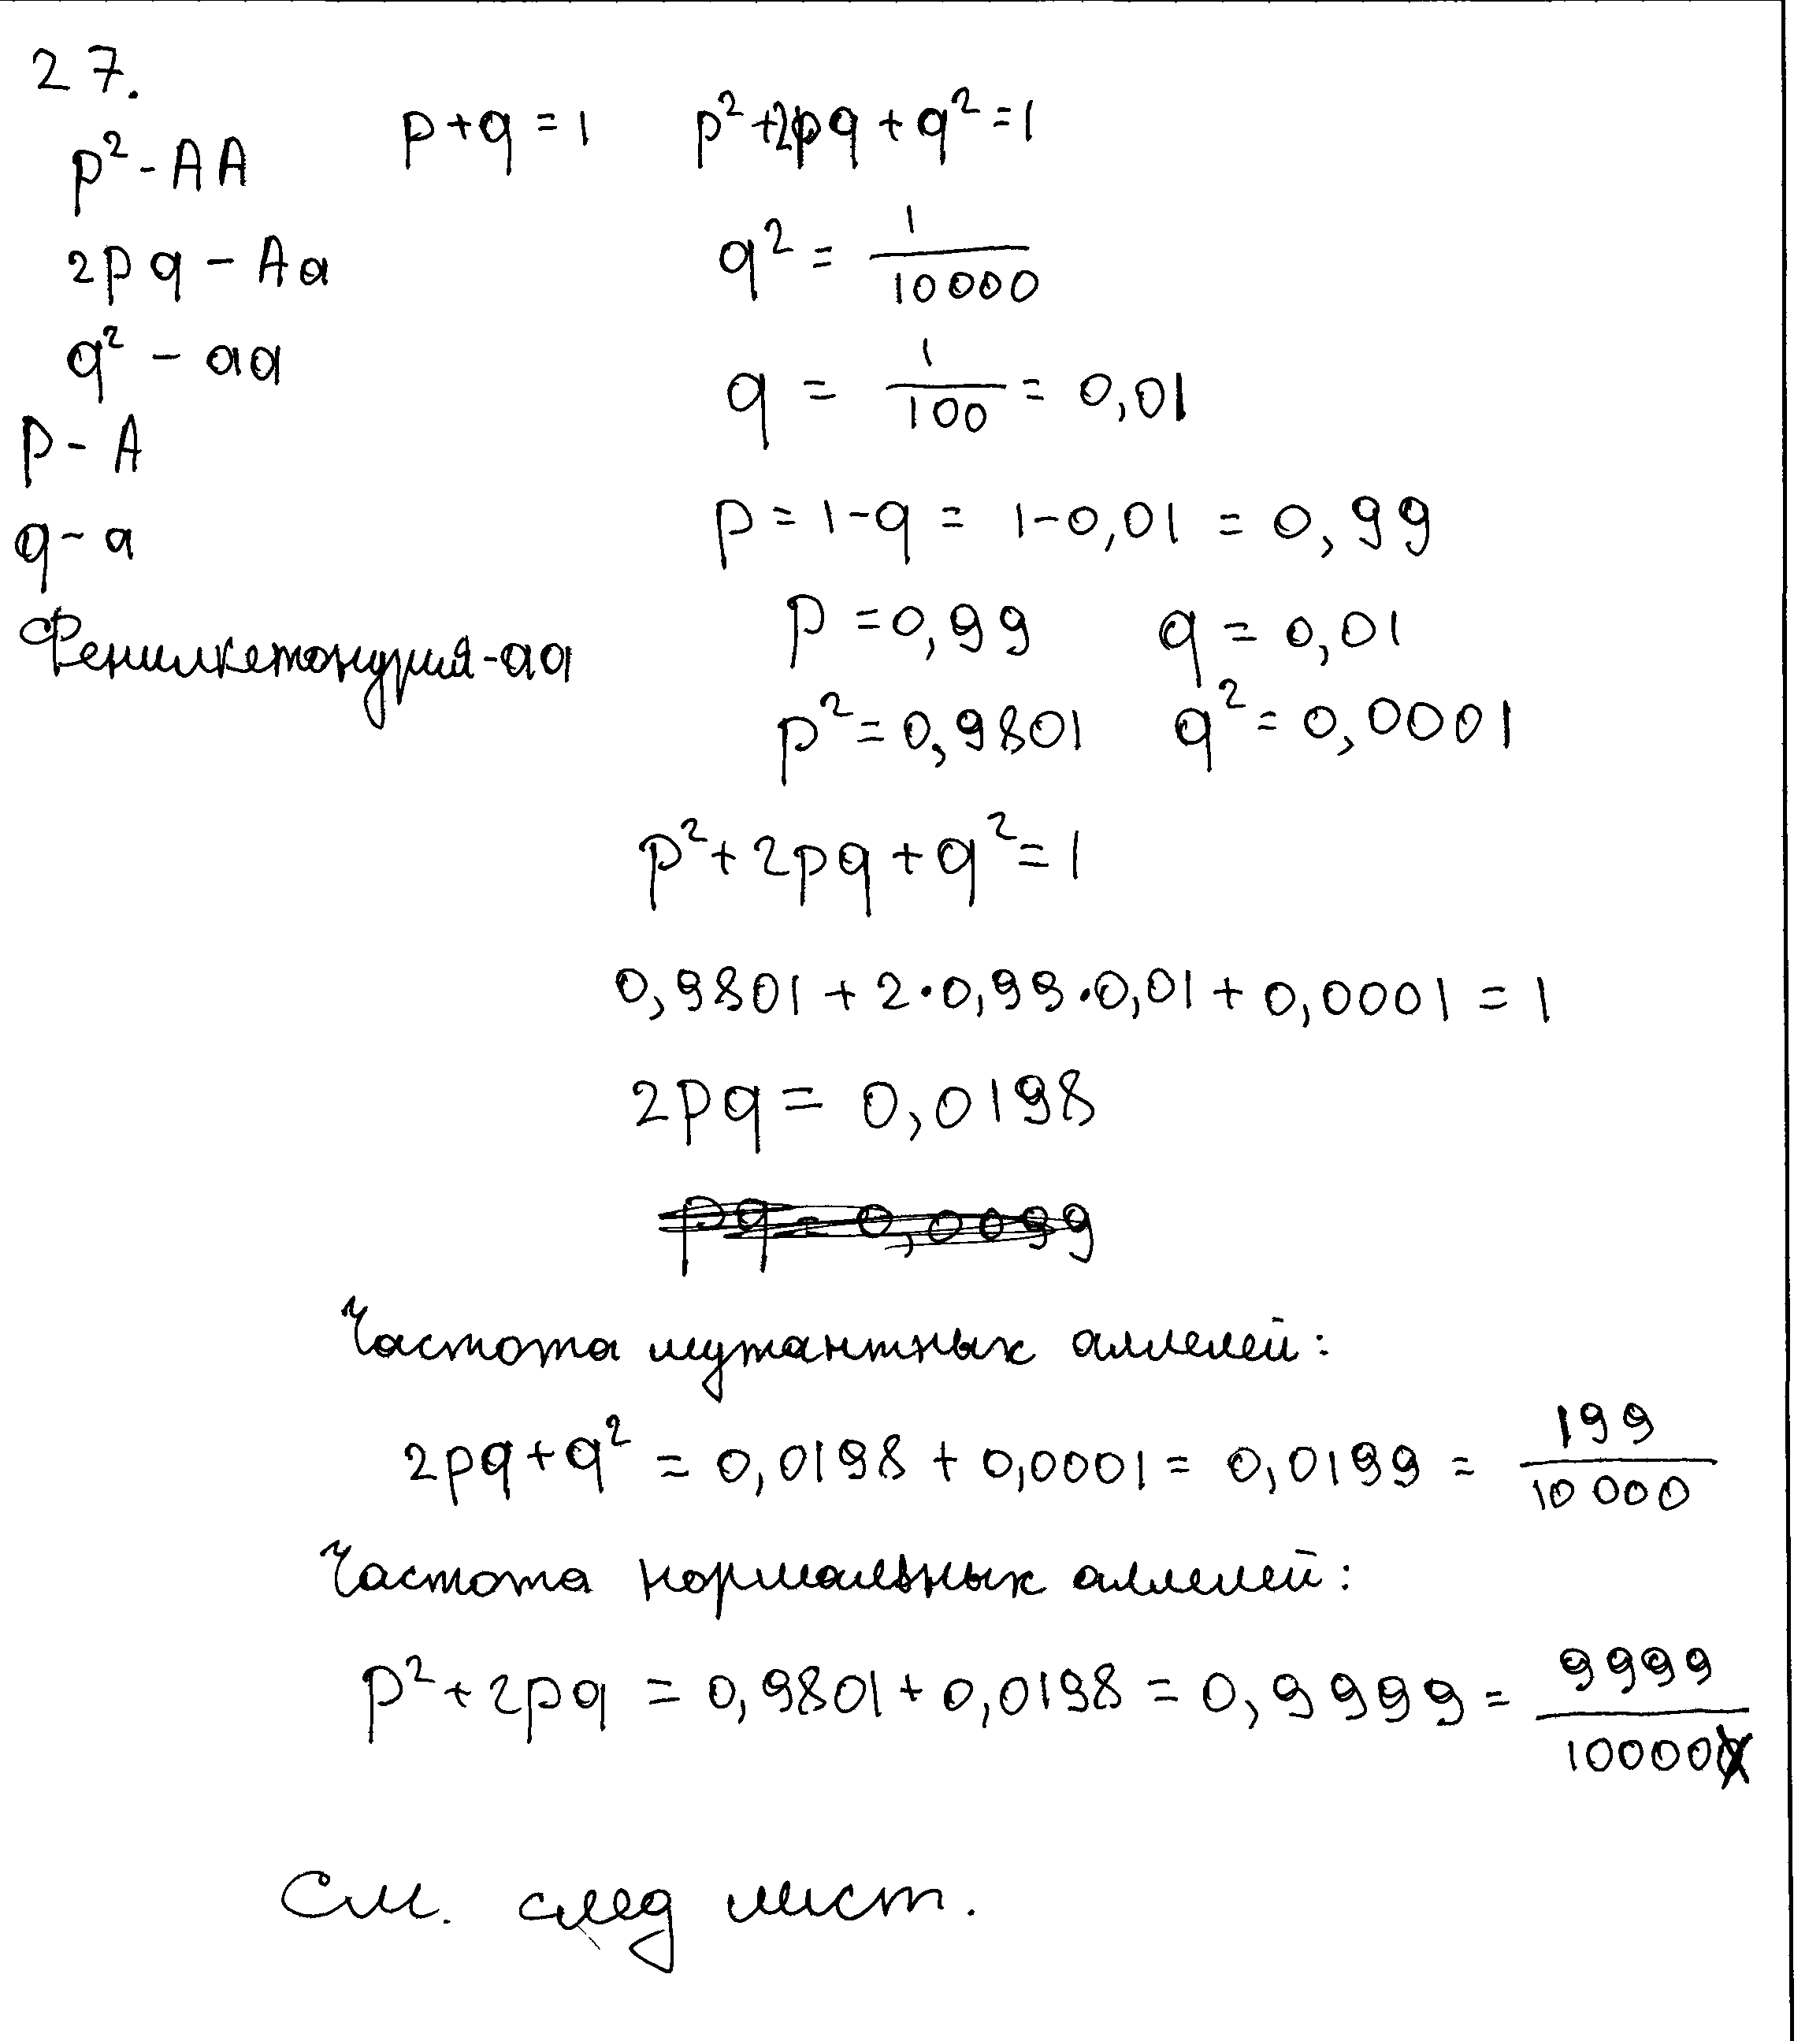 27.
p+q=1 p²+2pq+q²=1
p²-AA
2pq-Aa
q²-aa
p-A
q-a
Фенилкетонурия-aa
q² = 1/10000
q = 1/100 = 0,01
p=1-q = 1-0,01 = 0,99
p=0,99 q=0,01
p²=0,9801 q²=0,0001
p²+2pq+q²=1
0,9801+2·0,99·0,01+0,0001=1
2pq=0,0198
pq=0,0099
Частота мутантных аллелей:
2pq+q² = 0,0198+0,0001=0,0199 = 199/10000
Частота нормальных аллелей:
p²+2pq = 0,9801+0,0198=0,9999= 9999/10000
См. след лист.